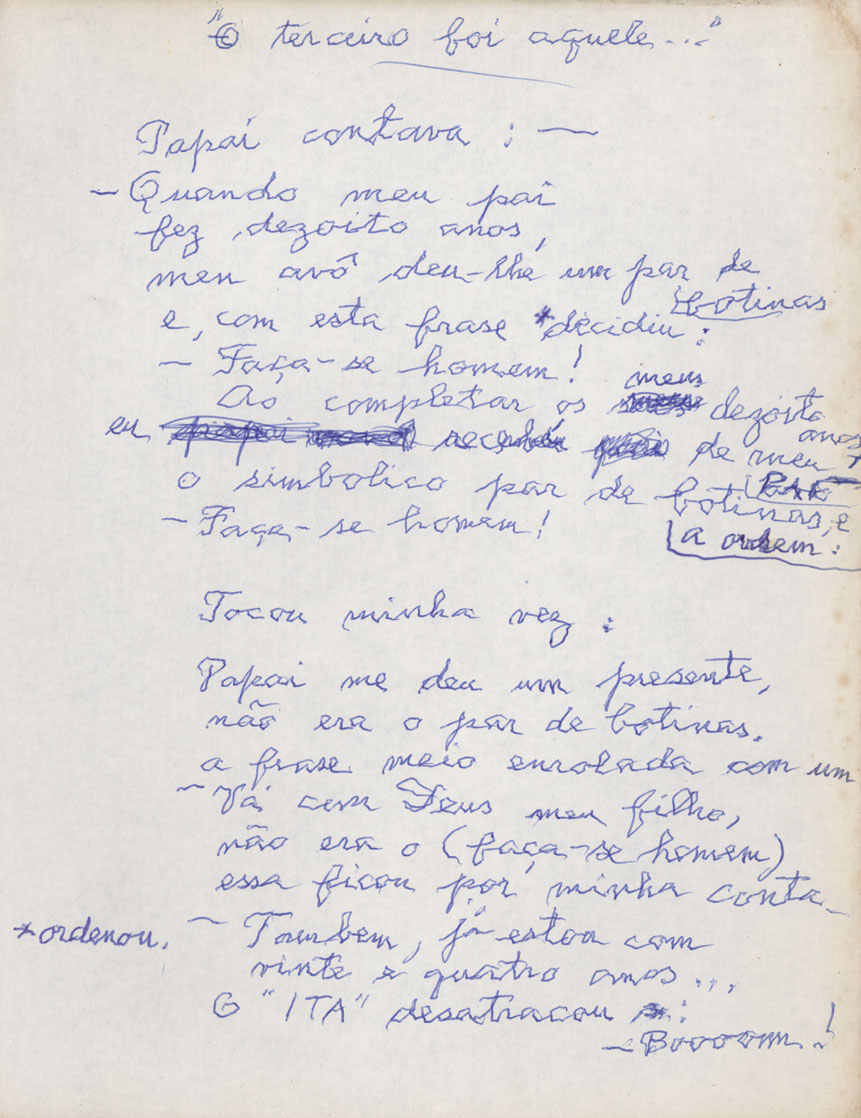 "O terceiro foi aquele..."
Papai contava : —
- Quando meu pai
fez dezoito anos,
meu avô deu-lhe um par de
botinas
e, com esta frase *decidiu :
- Faça-se homem !
Ao completar os meus dezoito
anos
eu recebi de meu
PAI
o simbolico par de botinas, e
- Faça-se homem!
a ordem :
Tocou minha vez :
Papai me deu um presente,
não era o par de botinas.
a frase meio enrolada com um
- Vá com Deus meu filho,
não era o (faça-se homem)
essa ficou por minha conta -
*ordenou.
- Tambem, já estou com
vinte e quatro anos...
O "ITA" desatracou :
- Boooom !